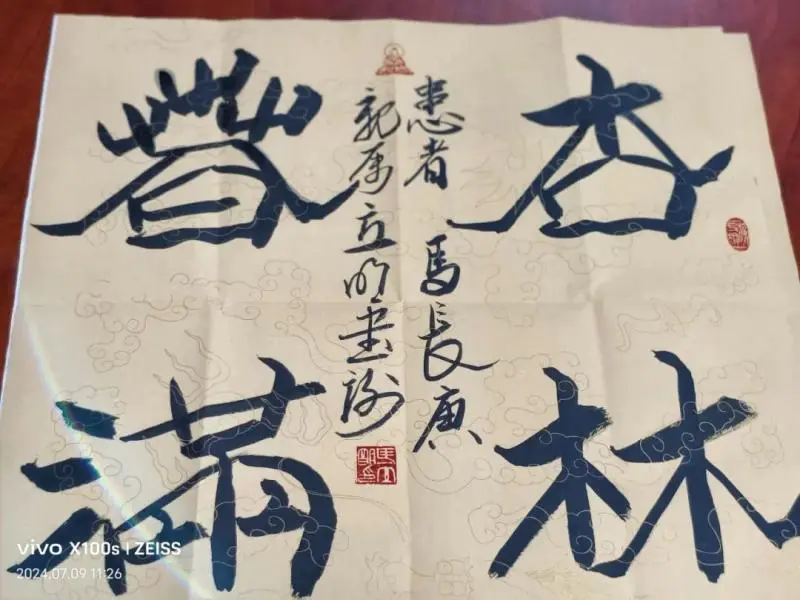 杏林
春满
患者 馬長庚
親属立明書谢
vivo X100s | ZEISS
2024.07.09 11:26